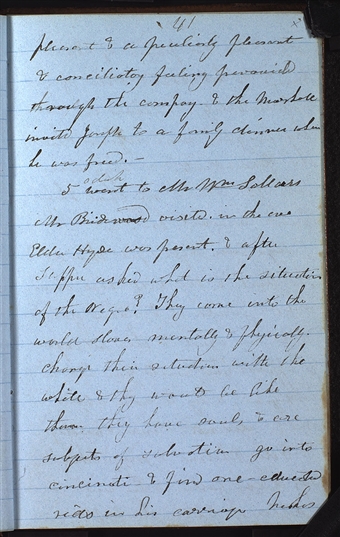 41
pleasant & a peculiarly pleasant
& conciliatory feeling prevailed
through the company. & the Marshall
invited Joseph to a family dinner when
he was freed. –
5 oclock went to Mr Wm Sollars
Mr Bridewood visited. in the eve
Elder Hyde was present. & after
Supper asked what is the situation
of the Negro? They come into the
world slaves mentally & physically.
change their situation with the
white & they would be like
them. they have souls & are
subjects of salvation go into
cincinati & find one educated
rids in his carriage. he has